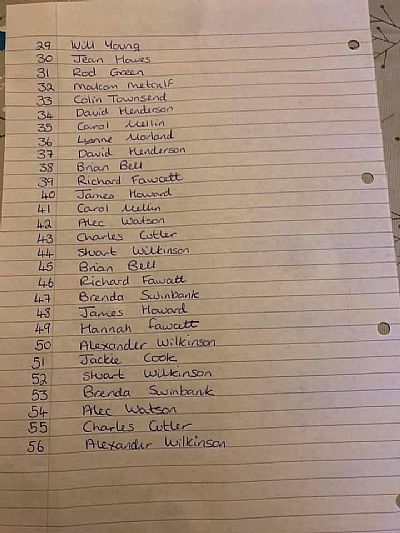 29 Will Young
30 Jean Hawes
31 Rod Green
32 Malcom Metcalf
33 Colin Townsend
34 David Henderson
35 Carol Mellin
36 Lynne Morland
37 David Henderson
38 Brian Bell
39 Richard Fawcett
40 James Howard
41 Carol Mellin
42 Alec Watson
43 Charles Cutler
44 Stuart Wilkinson
45 Brian Bell
46 Richard Fawcett
47 Brenda Swinbank
48 James Howard
49 Hannah Fawcett
50 Alexander Wilkinson
51 Jackie Cook
52 Stuart Wilkinson
53 Brenda Swinbank
54 Alec Watson
55 Charles Cutler
56 Alexander Wilkinson